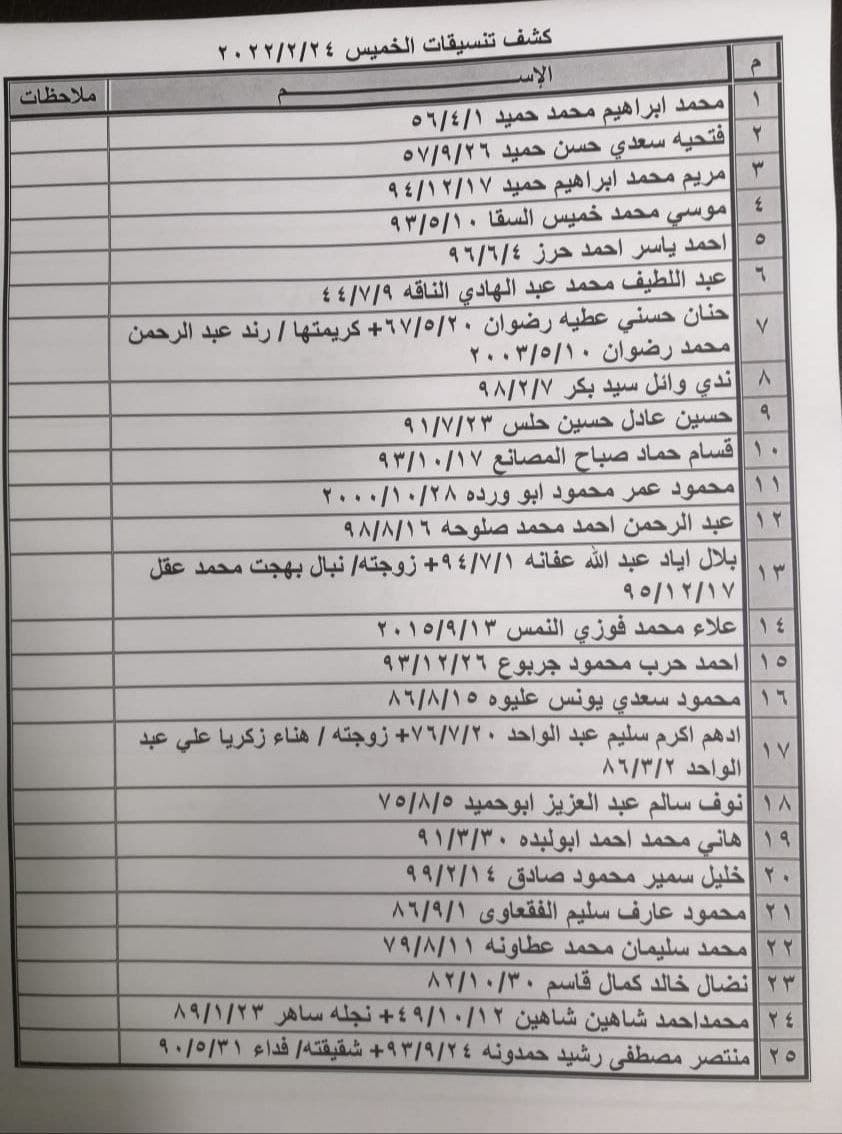 كشف تنسيقات الخميس ٢٠٢٢/٢/٢٤
م الإســـــــم ملاحظات
١ محمد ابراهيم محمد حميد ٥٦/٤/١
٢ فتحيه سعدي حسن حميد ٥٧/٩/٢٦
٣ مريم محمد ابراهيم حميد ٩٤/١٢/١٧
٤ موسي محمد خميس السقا ٩٣/٥/١٠
٥ احمد ياسر احمد حرز ٩٦/٦/٤
٦ عبد اللطيف محمد عبد الهادي الناقه ٤٤/٧/٩
٧ حنان حسني عطيه رضوان ٦٧/٥/٢٠+ كريمتها / رند عبد الرحمن
محمد رضوان ٢٠٠٣/٥/١٠
٨ ندي وائل سيد بكر ٩٨/٢/٧
٩ حسين عادل حسين حلس ٩١/٧/٢٣
١٠ قسام حماد صباح المصانع ٩٣/١٠/١٧
١١ محمود عمر محمود ابو ورده ٢٠٠٠/١٠/٢٨
١٢ عبد الرحمن احمد محمد صلوحه ٩٨/٨/١٦
١٣ بلال اياد عبد الله عفانه ٩٤/٧/١+ زوجته/ نبال بهجت محمد عقل
٩٥/١٢/١٧
١٤ علاء محمد فوزي النمس ٢٠١٥/٩/١٣
١٥ احمد حرب محمود جربوع ٩٣/١٢/٢٦
١٦ محمود سعدي يونس عليوه ٨٦/٨/١٥
١٧ ادهم اكرم سليم عبد الواحد ٧٦/٧/٢٠+ زوجته / هناء زكريا علي عبد
الواحد ٨٦/٣/٢
١٨ نوف سالم عبد العزيز ابوحميد ٧٥/٨/٥
١٩ هاني محمد احمد ابولبده ٩١/٣/٣٠
٢٠ خليل سمير محمود صادق ٩٩/٢/١٤
٢١ محمود عارف سليم الفقعاوى ٨٦/٩/١
٢٢ محمد سليمان محمد عطاونه ٧٩/٨/١١
٢٣ نضال خالد كمال قاسم ٨٢/١٠/٣٠
٢٤ محمداحمد شاهين شاهين ٤٩/١٠/١٢+ نجله ساهر ٨٩/١/٢٣
٢٥ منتصر مصطفى رشيد حمدونه ٩٣/٩/٢٤+ شقيقته/ فداء ٩٠/٥/٣١